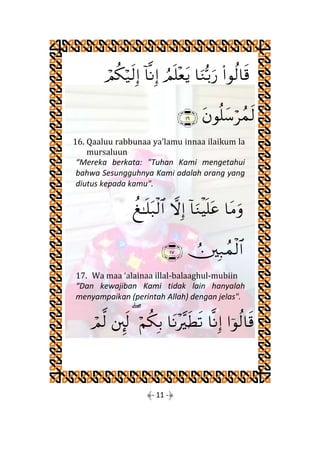 قَالُوا۟ رَبُّنَا يَعْلَمُ إِنَّآ إِلَيْكُمْ
لَمُرْسَلُونَ ﴿١٦﴾
16. Qaaluu rabbunaa ya’lamu innaa ilaikum la
mursaluun
“Mereka berkata: "Tuhan Kami mengetahui
bahwa Sesungguhnya Kami adalah orang yang
diutus kepada kamu".
وَمَا عَلَيْنَآ إِلَّا ٱلْبَلَـٰغُ
ٱلْمُبِينُ ﴿١٧﴾
17. Wa maa ‘alainaa illal-balaaghul-mubiin
“Dan kewajiban Kami tidak lain hanyalah
menyampaikan (perintah Allah) dengan jelas".
قَالُوٓا۟ إِنَّا تَطَيَّرْنَا بِكُمْ ۖ لَئِن لَّمْ
- 11 -